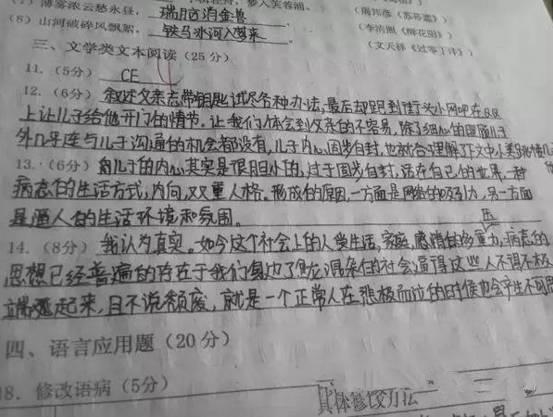 (7) 薄雾浓云愁永昼,瑞脑消金兽。(李清照《醉花阴》)
(8) 山河破碎风飘絮, 铁马冰河入梦来 (文天祥《过零丁洋》)
三、文学类文本阅读(25分)
11.(5分) CE
12.(6分) 叙述父亲忘带钥匙试尽各种办法,最后却跑到街头小网吧在QQ
上让儿子给他开门的情节。让我们体会到父亲的不容易,除了细心的照顾儿子
外几乎连与儿子沟通的机会都没有,儿子内心固步自封,也就合理解了文中小
13.(6分) 儿子的内心其实是很胆小的,过于固步自封,活在自己的世界,一种
病态的生活方式,内向,双重人格。形成的原因,一方面是网络的吸引力,另一方面
是逼人的生活环境和氛围。
14.(8分) 我认为真实。如今这个社会上的人受生活,家庭,感情的多重压力,病态的
思想已经普遍的存在于我们身边了 混杂的社会逼得这些人不得不极
端起来,且不说颓废,就是一个正常人在悲极而泣的时候也会产生不
四、语言应用题(20分)
18. 修改语病(5分) 具体修改方法